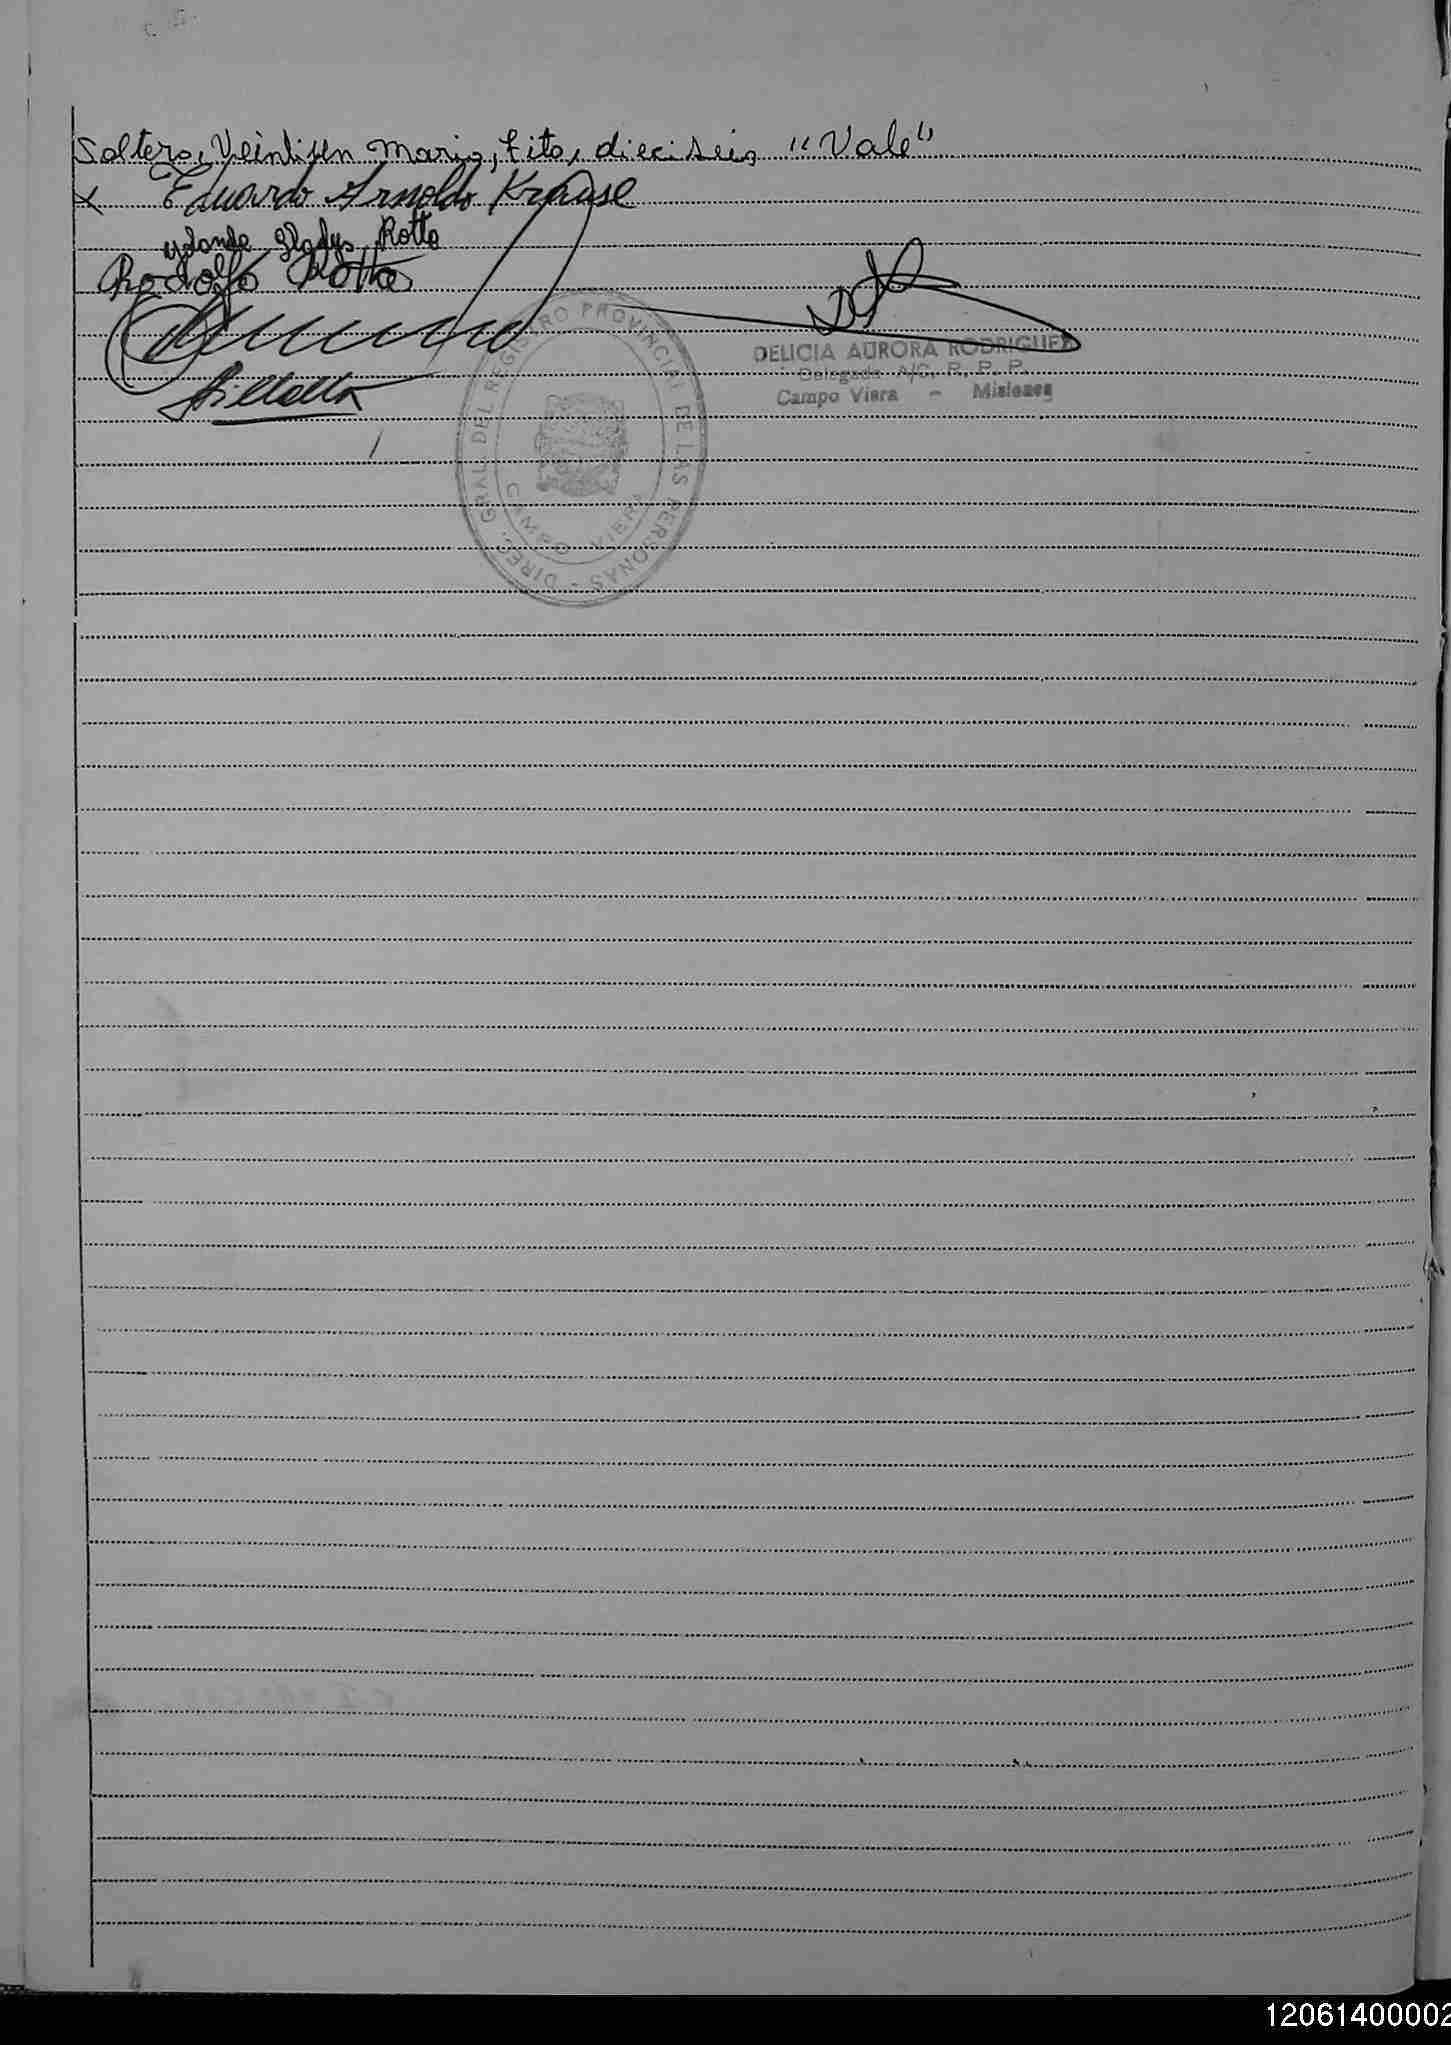 Soltero, Veintisen Mario, Tito, dieciseis "Vale"
x Eduardo Arnoldo Krause
Yolanda Gladys Rotta
Rodolfo Rotta
DIREC. GRAL. DEL REGISTRO PROVINCIAL DE LAS PERSONAS -
CAMPO VIERA
DELICIA AURORA RODRIGUEZ
Delegada A/C. R. P. P.
Campo Viera - Misiones
12061400002